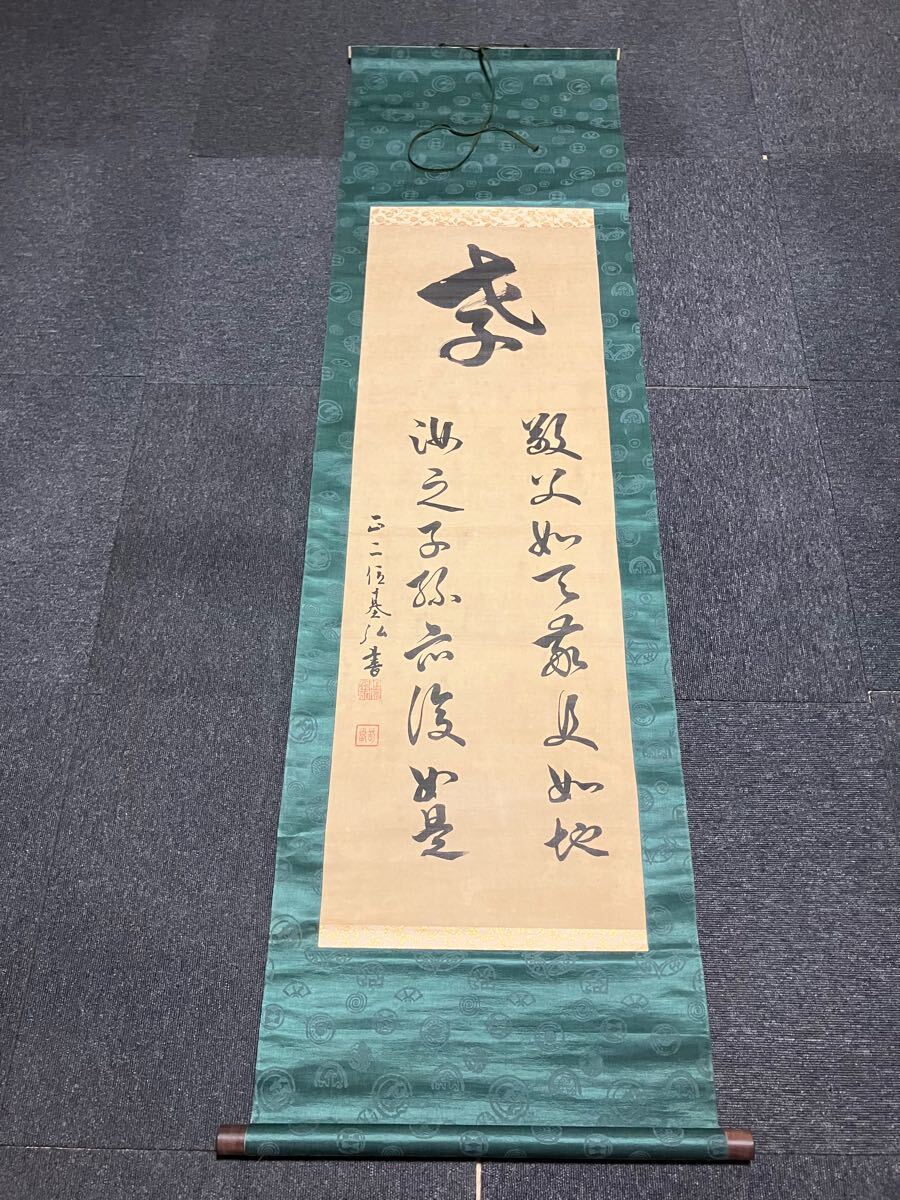 孝
敬父如天敬母如地
汝之子孫亦復如是
正二位基弘書